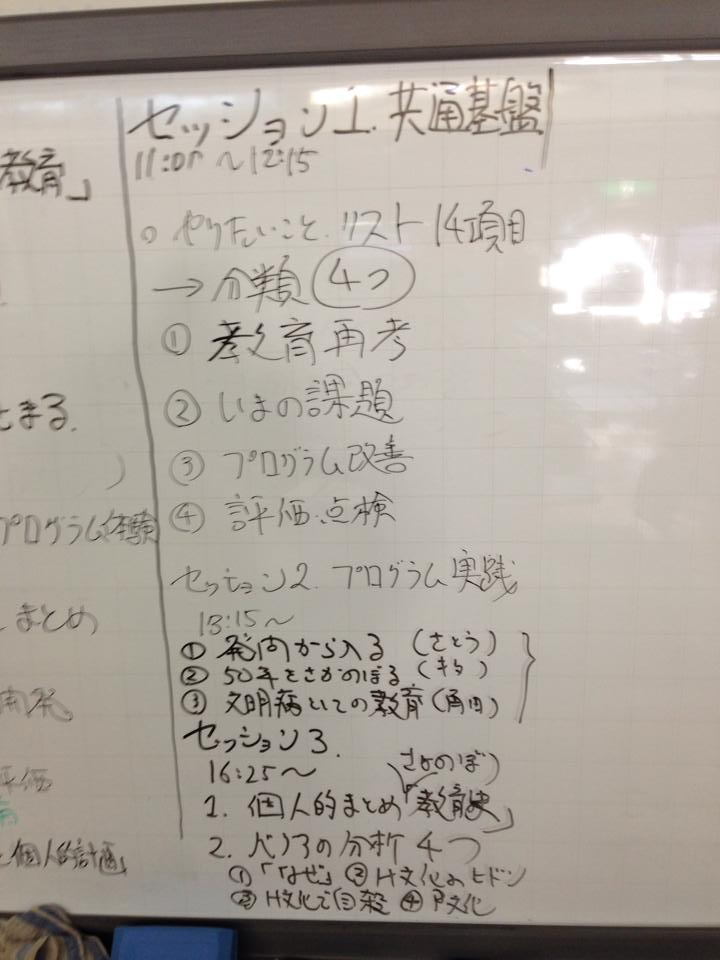 教育」
まる.
プログラム体験
まとめ
開発
評価
個人的計画」
セッション1. 共通基盤
11:00 〜12:15
○ やりたいこと. リスト 14項目
→ 分類 4つ
① 教育再考
② いまの課題
③ プログラム改善
④ 評価.点検
セッション2. プログラム実践
13:15〜
① 発問から入る (さとう)
② 50年をさかのぼる (キタ)
③ 文明病としての教育 (角田)
セッション3.
16:25〜
さかのぼり
1. 個人的まとめ「教育史」
2. の分析 4つ
①「なぜ」 ② H文化の
③ H文化で自殺 ④ P文化